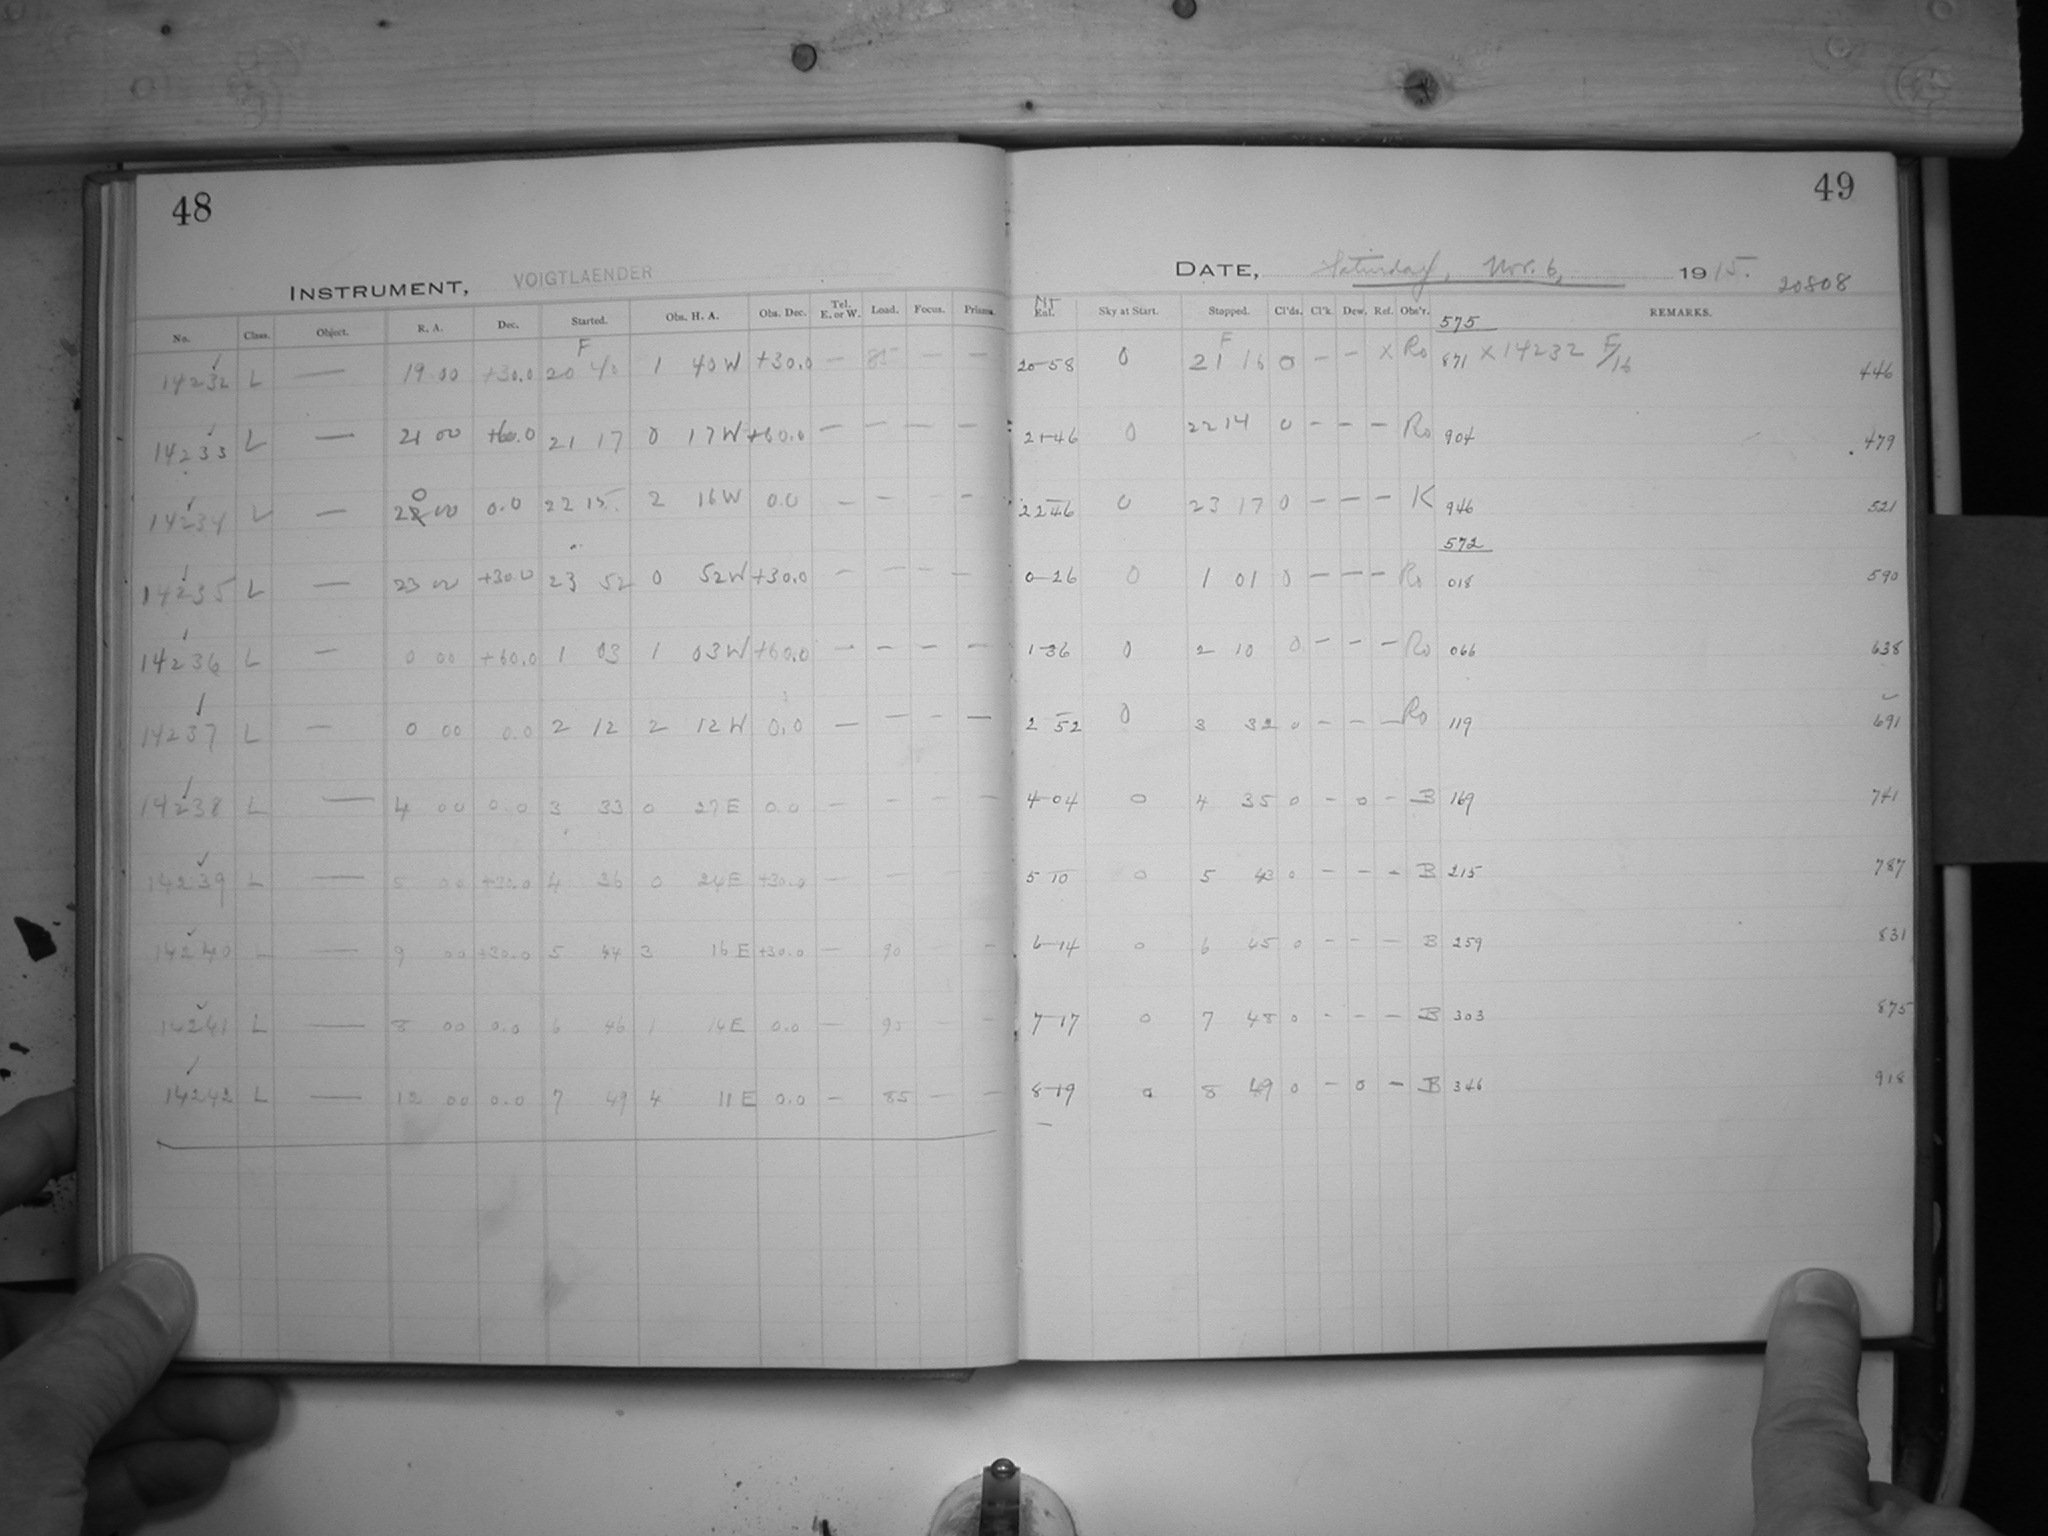 48
INSTRUMENT, VOIGTLAENDER
No. Class. Object. R. A. Dec. Started. Obs. H. A. Obs. Dec. Tel. E. or W. Load. Focus. Prisms.
14232 L — 19 00 +30.0 F 20 40 1 40 W +30.0 — 85 — —
14233 L — 21 00 +60.0 21 17 0 17 W +60.0 — — — —
14234 L — 0 00 0.0 22 15 2 16 W 0.0 — — —
14235 L — 23 00 +30.0 23 52 0 52 W +30.0 — — — —
14236 L — 0 00 +60.0 1 03 1 03 W +60.0 — — — —
14237 L — 0 00 0.0 2 12 2 12 W 0.0 — — — —
14238 L — 4 00 0.0 3 33 0 27 E 0.0 — — — —
14239 L — 5 00 +30.0 4 36 0 24 E +30.0 — — — —
14240 L — 9 00 +30.0 5 44 3 16 E +30.0 — 90 — —
14241 L — 8 00 0.0 6 46 1 14 E 0.0 — 95 — —
14242 L — 12 00 0.0 7 49 4 11 E 0.0 — 85 — —
49
DATE, Saturday, Nov. 6, 1915. 20808
Ext. Sky at Start. Stopped. Cl'ds. Cl'k. Dew. Ref. Obs'r. REMARKS.
575
20-58 0 F 21 16 0 — — X Ro 871 X 14232 F/16 446
21-46 0 22 14 0 — — — Ro 904 479
22-46 0 23 17 0 — — — K 946 521
572
0-26 0 1 01 0 — — — Ro 018 590
1-36 0 2 10 0 — — — Ro 066 638
2 52 0 3 32 0 — — — Ro 119 691
4-04 0 4 35 0 — 0 — B 169 741
5 10 0 5 43 0 — — — B 215 787
6-14 0 6 45 0 — — — B 259 831
7-17 0 7 48 0 — — — B 303 875
8-19 0 8 49 0 — 0 — B 346 918